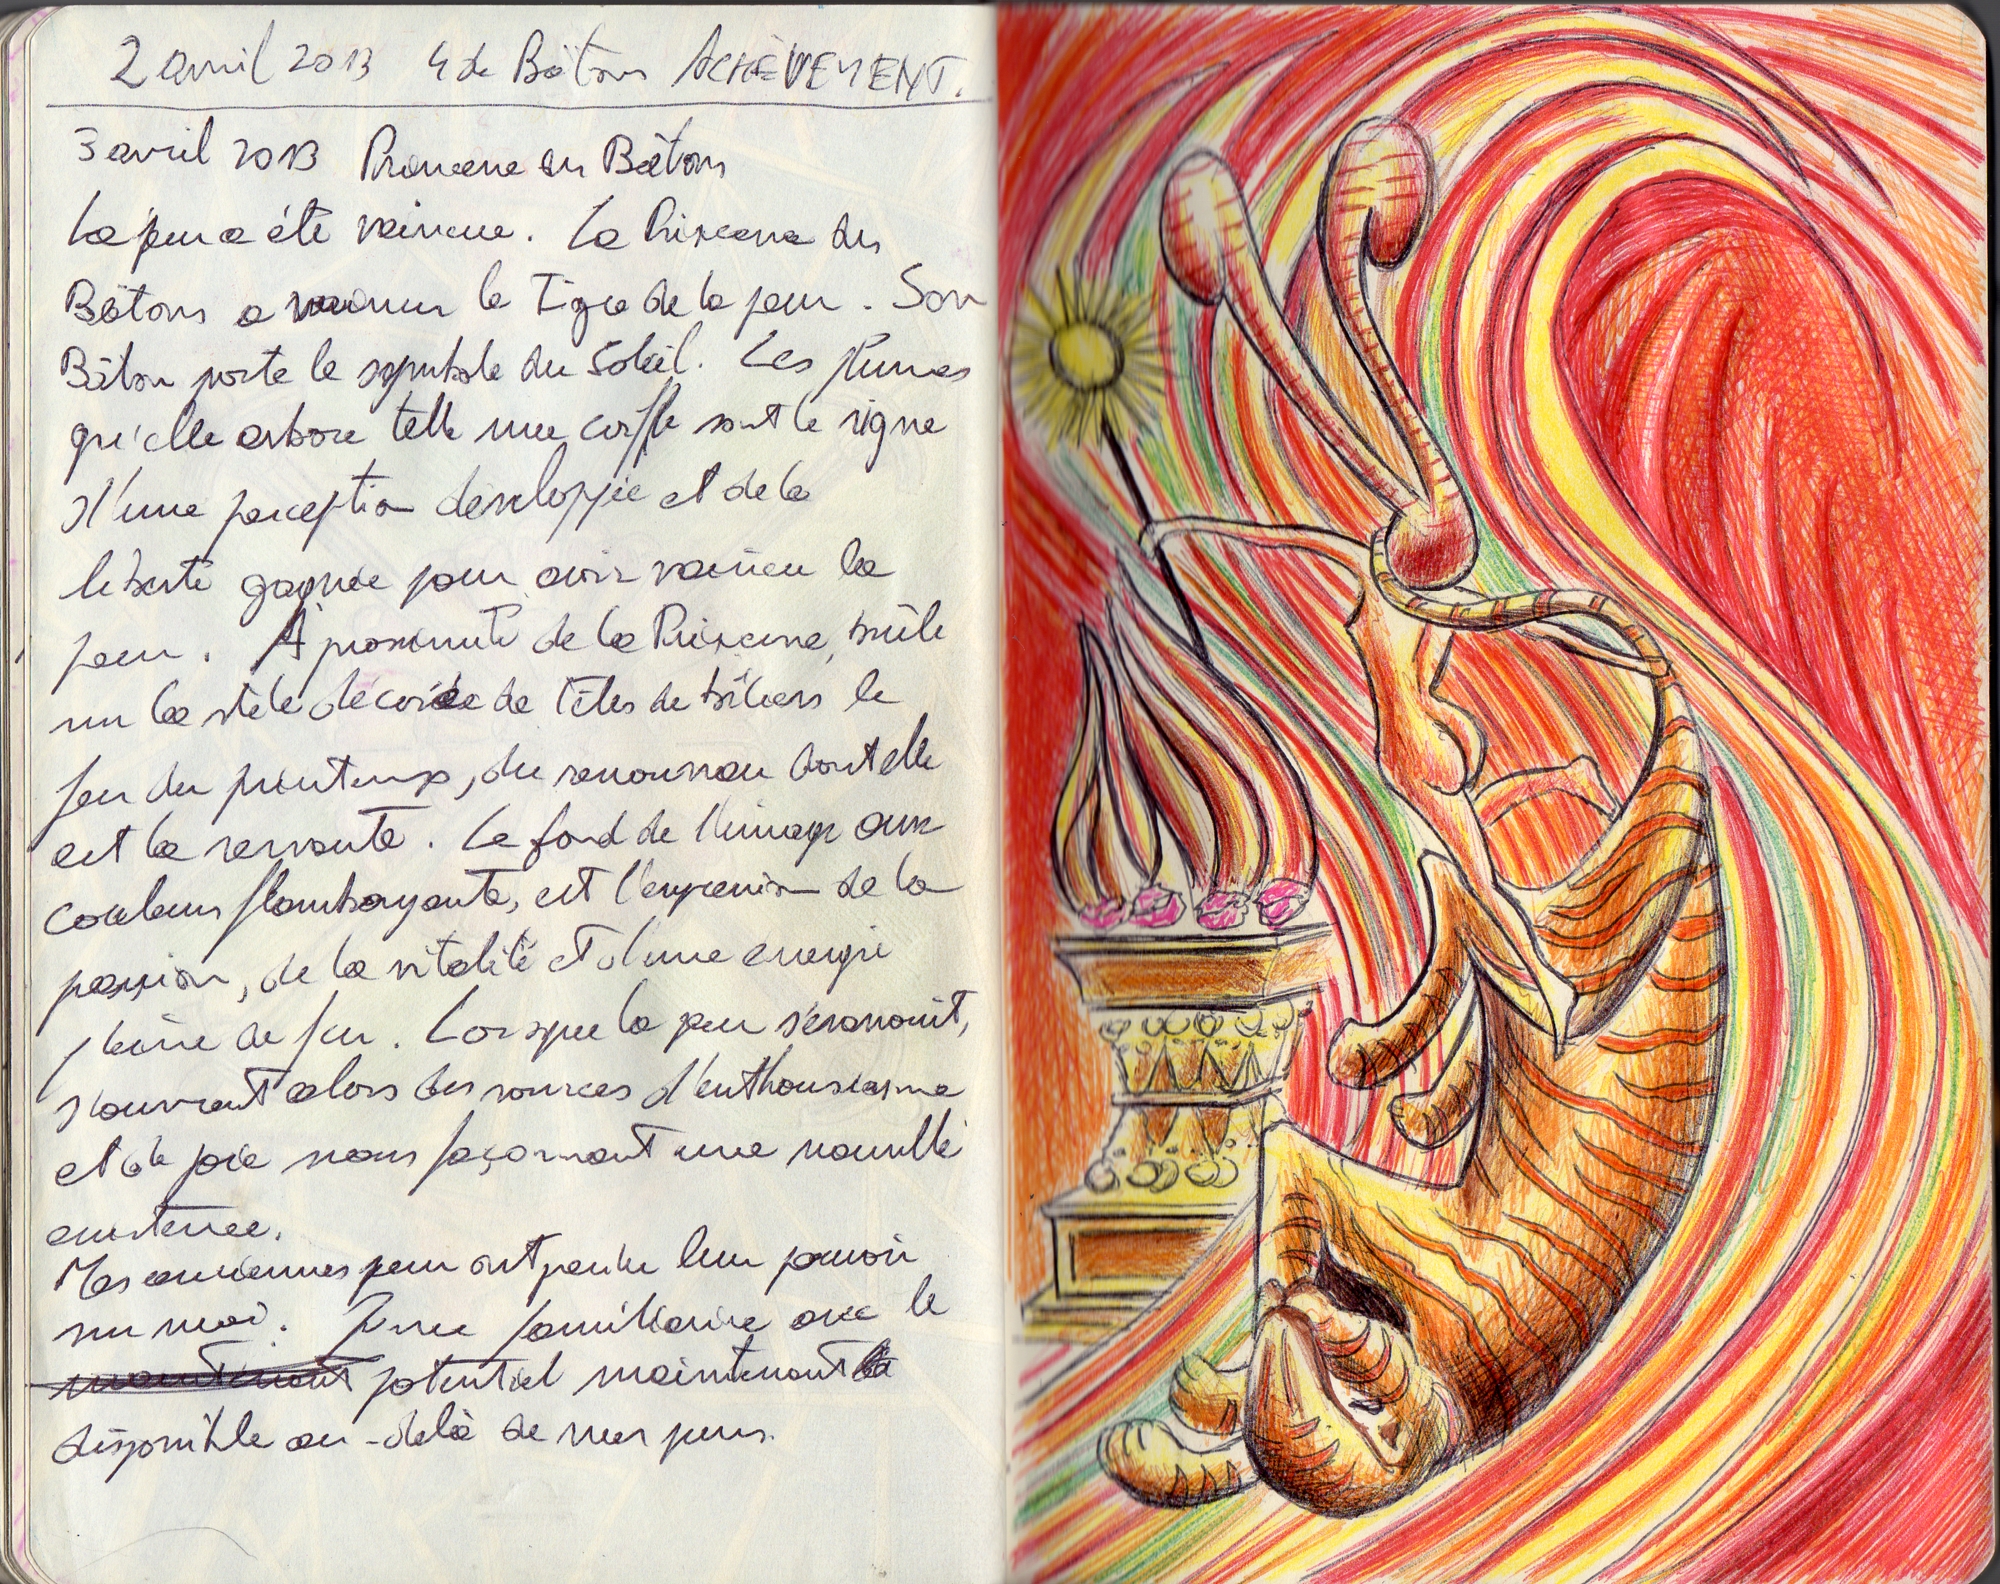 2 avril 2013 4 de Bâtons ACHÈVEMENT.
3 avril 2013 Princesse des Bâtons
La peur a été vaincue. La Princesse des
Bâtons a vaincu le Tigre de la peur. Son
Bâton porte le symbole du Soleil. Les plumes
qu'elle arbore telle une coiffe sont le signe
d'une perception développée et de la
liberté gagnée pour avoir vaincu la
peur. À proximité de la Princesse, brûle
sur la stèle décorée de têtes de béliers le
feu du printemps, du renouveau dont elle
est la servante. Le fond de l'image aux
couleurs flamboyantes, est l'expression de la
passion, de la vitalité et d'une énergie
pleine de feu. Lorsque la peur s'évanouit,
s'ouvrent alors des sources d'enthousiasme
et de joie nous façonnant une nouvelle
existence.
Mes anciennes peurs ont perdu leur pouvoir
sur moi. Je me familiarise avec le
potentiel maintenant
disponible au-delà de mes peurs.